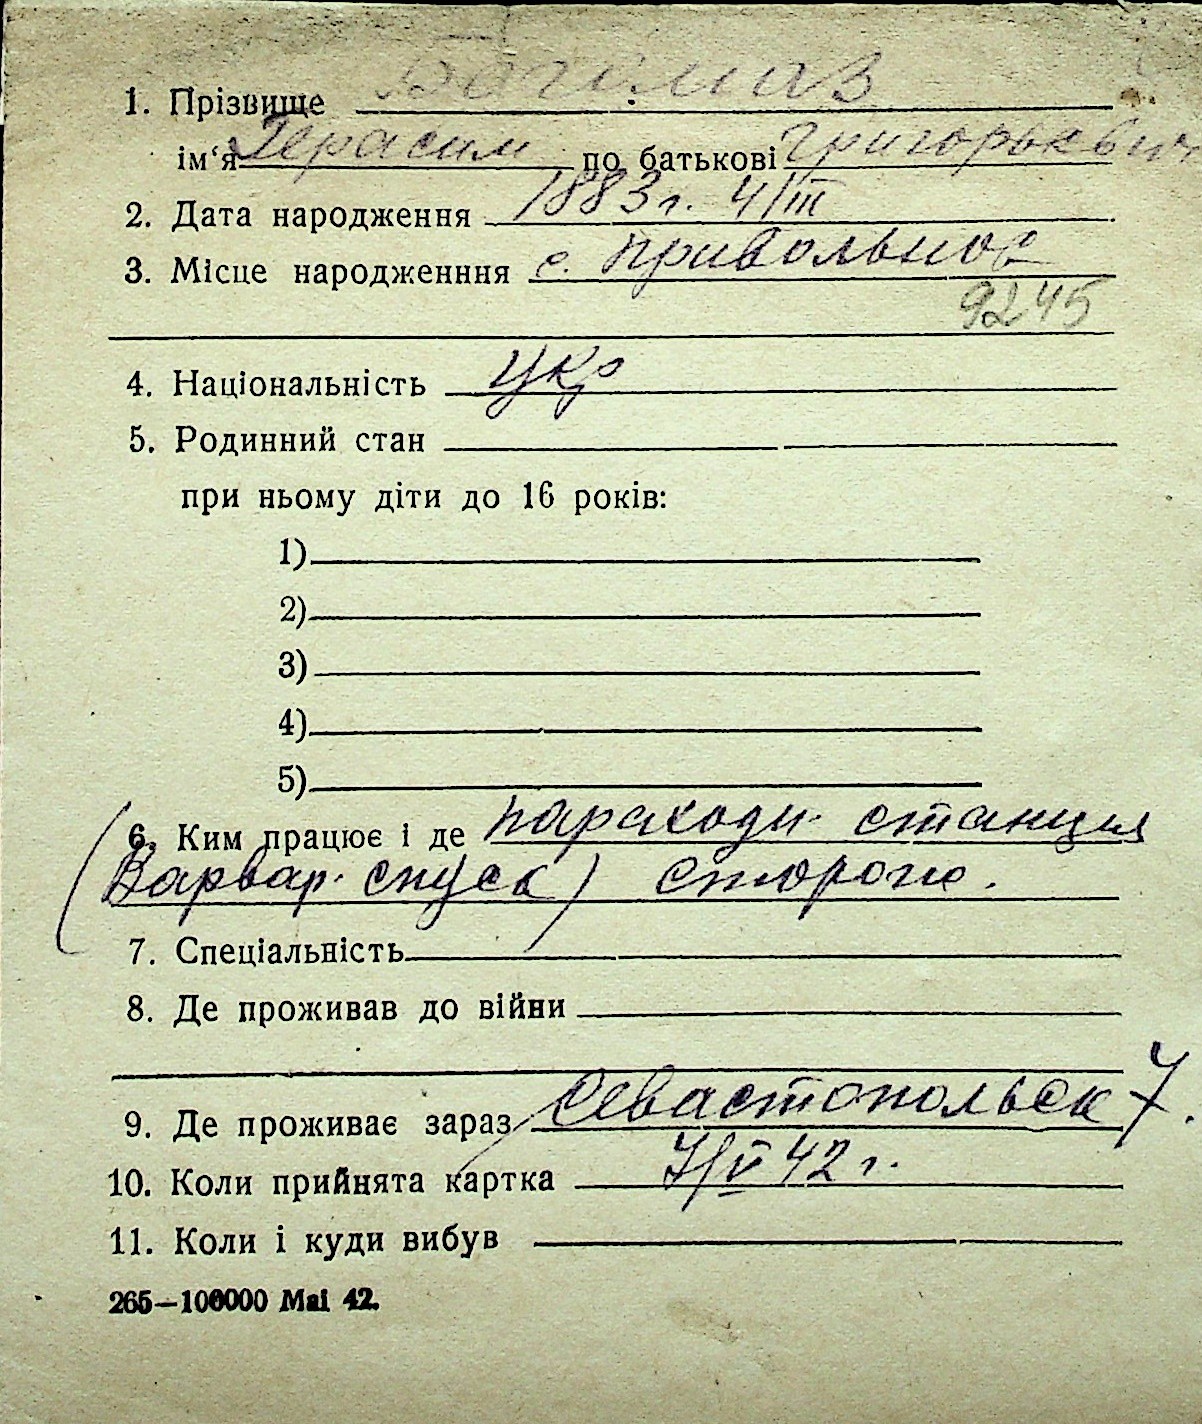 1. Прізвище Богомаз
ім‘я Герасим по батькові Григорьевич
2. Дата народження 1883 г. 4/III
3. Місце народженння с. Привольное
9245
4. Національність Укр
5. Родинний стан
при ньому діти до 16 років:
1)
2)
3)
4)
5)
6. Ким працює і де параходн. станция
(Варвар. спуск) сторож.
7. Спеціальність
8. Де проживав до війни
9. Де проживає зараз Севастопольск 7.
10. Коли прийнята картка 7/V 42 г.
11. Коли і куди вибув
265—100000 Mai 42.